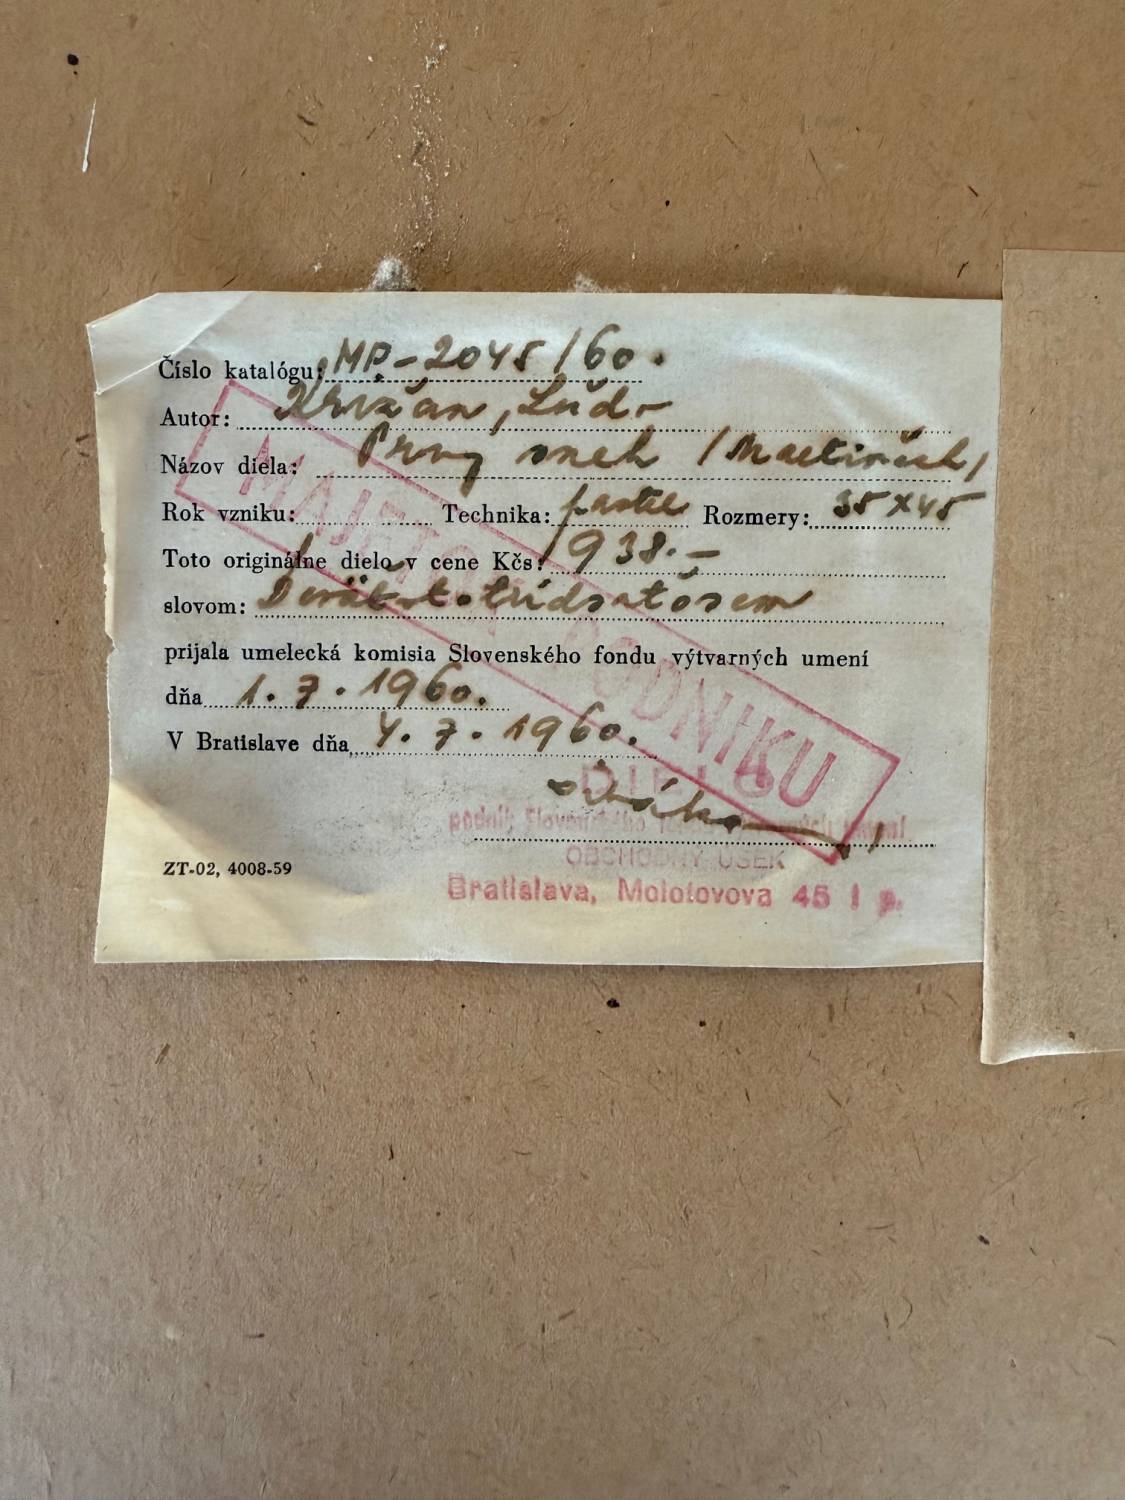 Číslo katalógu: MP-2045/60.
Autor: Križan, Ľudo
Názov diela: Prvý sneh /Martinček/
Rok vzniku: Technika: pastel Rozmery: 35x45
Toto originálne dielo v cene Kčs: 938.-
slovom: Deväťstotridsaťosem
prijala umelecká komisia Slovenského fondu výtvarných umení
dňa 1. 7. 1960.
V Bratislave dňa 4. 7. 1960.
MAJETOK PODNIKU
DIELO
podnik Slovenského fondu výtvarných umení
OBCHODNÝ ÚSEK
Bratislava, Molotovova 45 I p.
ZT-02, 4008-59